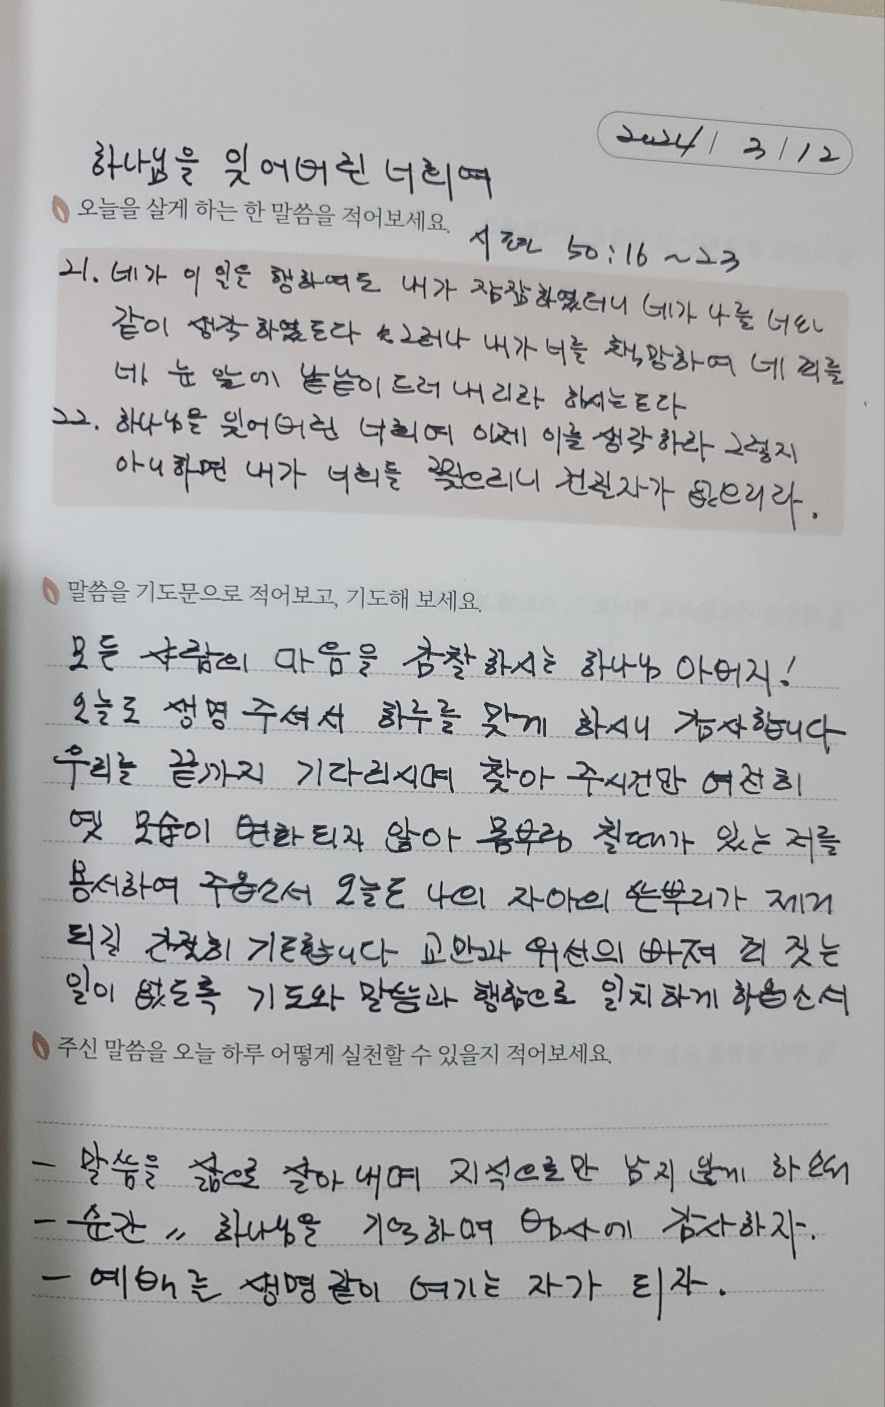 2024 / 3 / 12
하나님을 잊어버린 너희여
오늘을 살게 하는 한 말씀을 적어보세요.
시편 50:16 ~ 23
21. 네가 이 일을 행하여도 내가 잠잠하였더니 네가 나를 너와
같이 생각하였도다 그러나 내가 너를 책망하여 네 죄를
네 눈 앞에 낱낱이 드러 내리라 하시는도다
22. 하나님을 잊어버린 너희여 이제 이를 생각하라 그렇지
아니하면 내가 너희를 찢으리니 건질자가 없으리라.
말씀을 기도문으로 적어보고, 기도해 보세요.
모든 사람의 마음을 감찰하시는 하나님 아버지!
오늘도 생명 주셔서 하루를 맞게 하시니 감사합니다
우리를 끝까지 기다리시며 찾아 주시건만 여전히
옛 모습이 변화 되지 않아 몸부림 칠때가 있는 저를
용서하여 주옵소서 오늘도 나의 자아의 쓴뿌리가 제거
되길 간절히 기도합니다 교만과 위선의 빠져 죄 짓는
일이 없도록 기도와 말씀과 행함으로 일치하게 하옵소서
주신 말씀을 오늘 하루 어떻게 실천할 수 있을지 적어보세요.
- 말씀을 삶으로 살아 내며 지식으로만 남지 않게 하소서
- 순간 〃 하나님을 기억하며 범사에 감사하자.
- 예배를 생명같이 여기는 자가 되자.